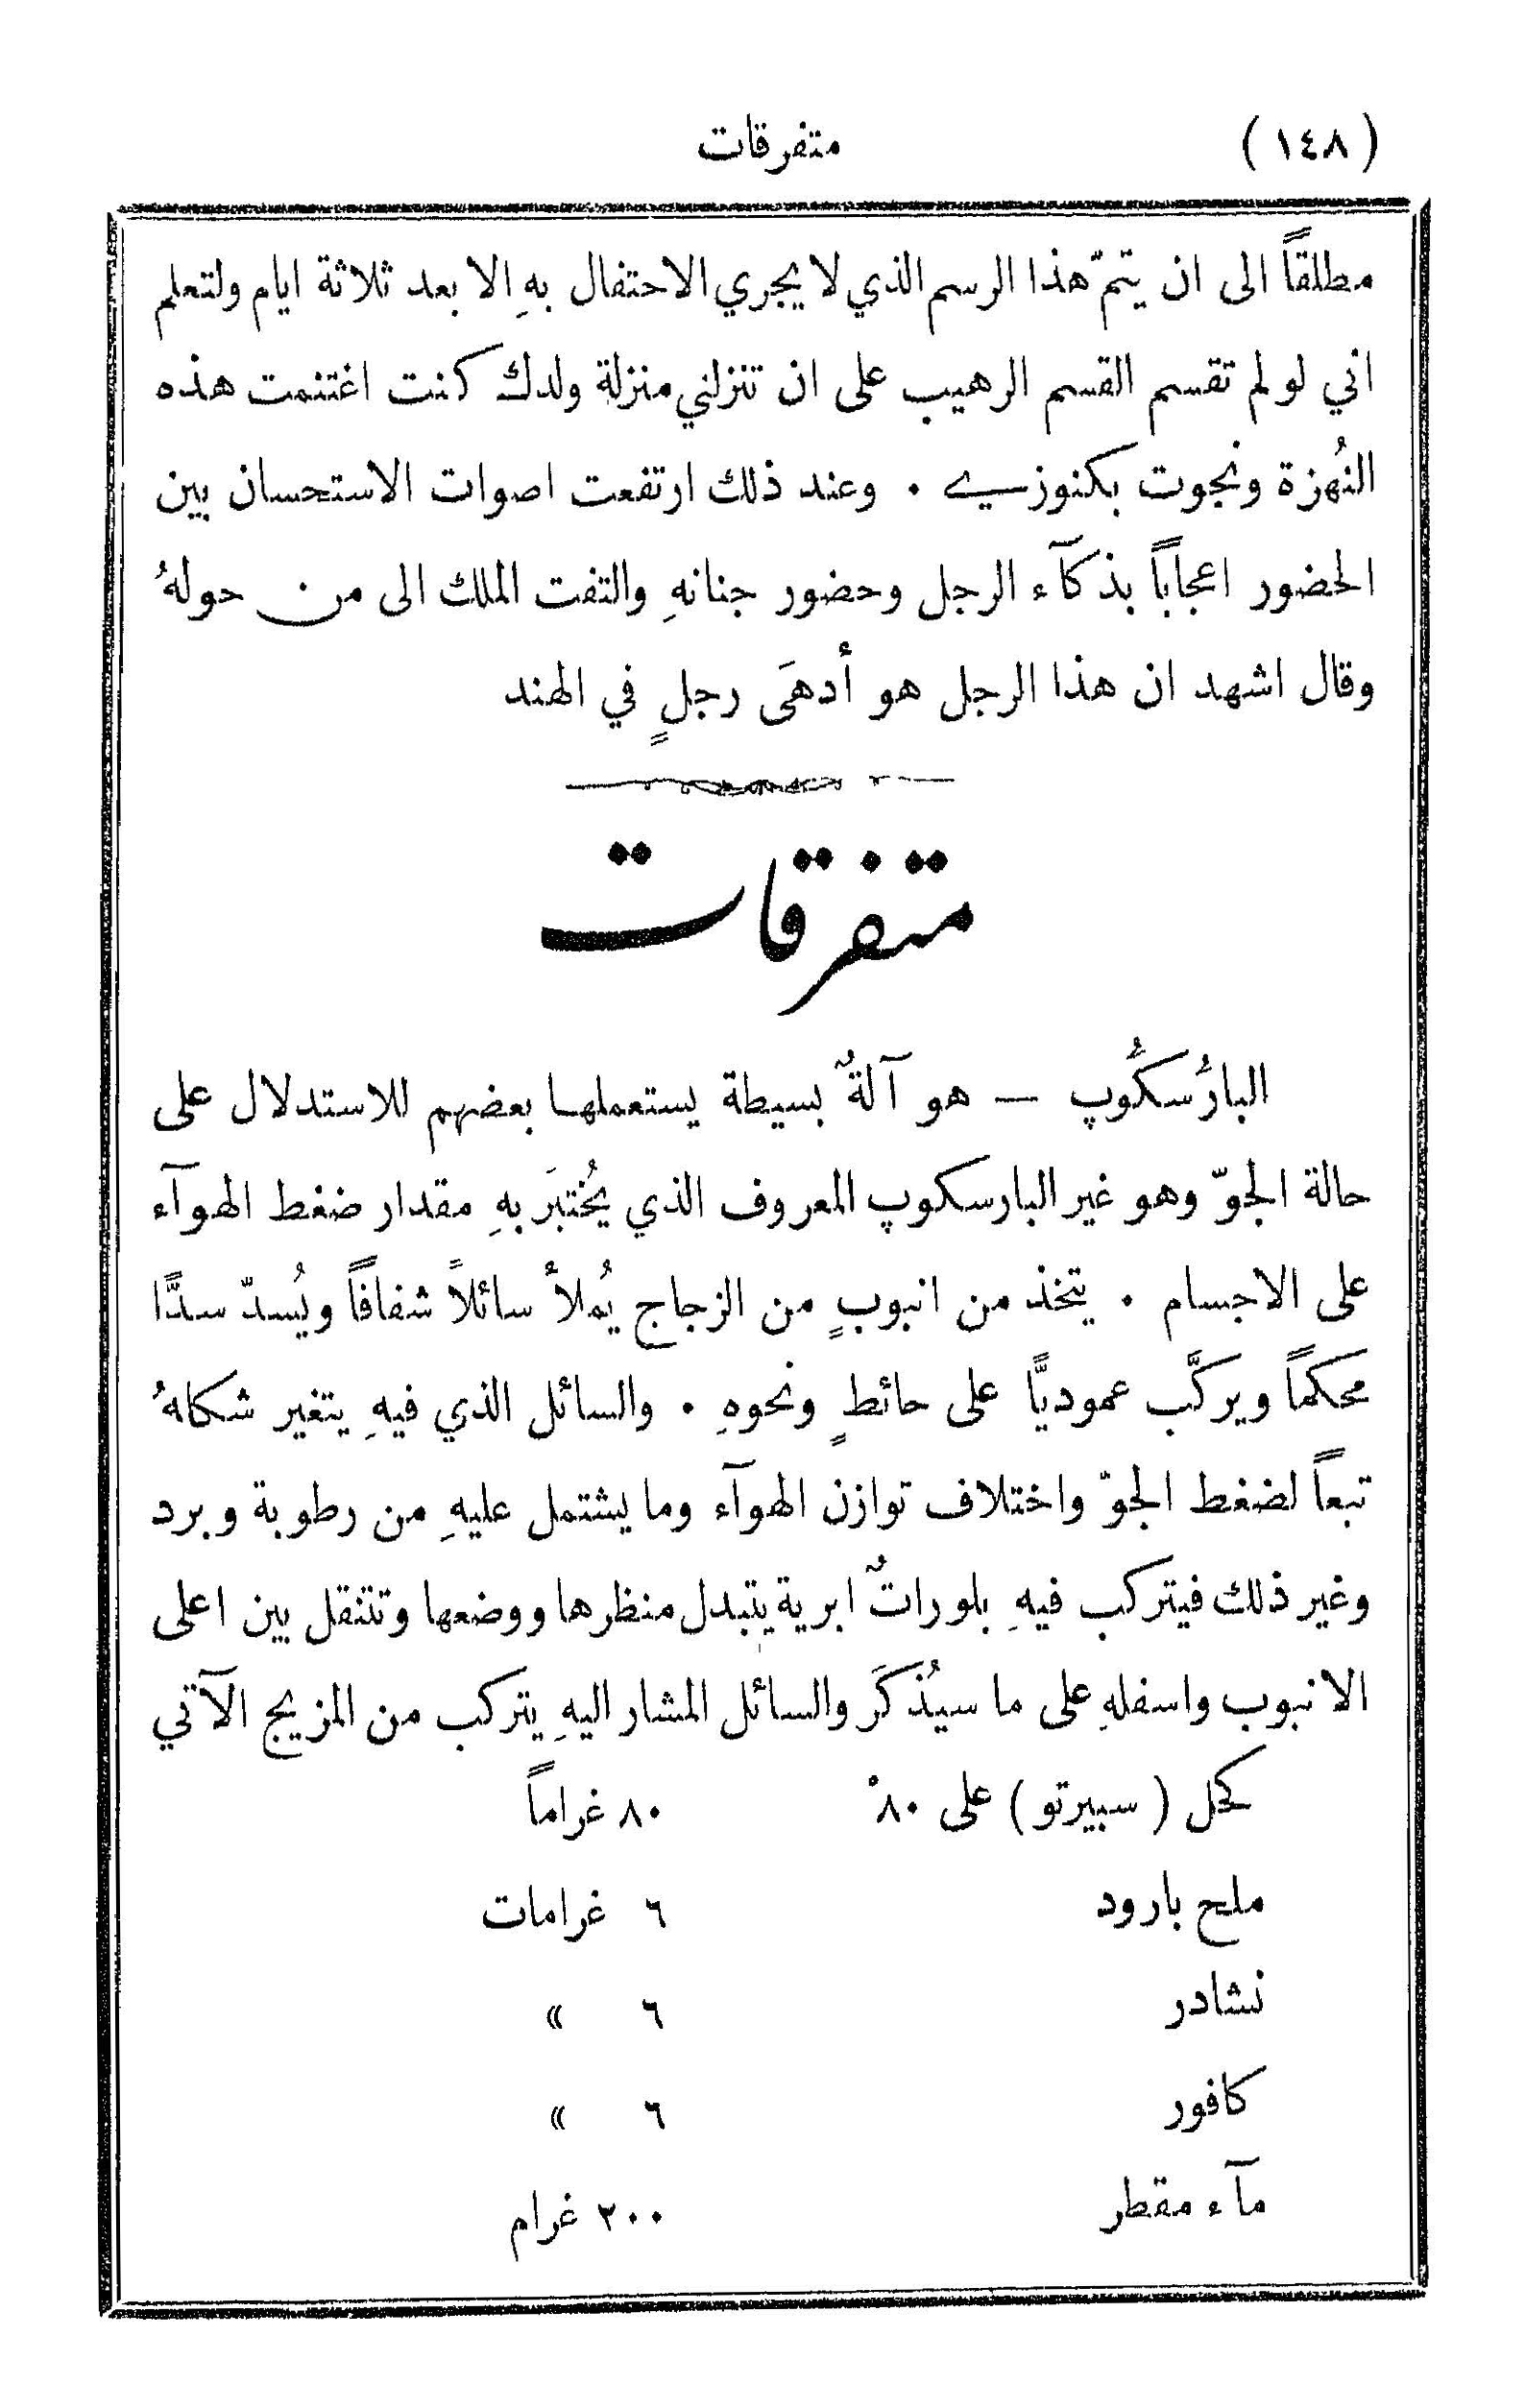 (١٤٨) متفرقات
مطلقاً الى ان يتمّ هذا الرسم الذي لا يجري الاحتفال بهِ الا بعد ثلاثة ايام ولتعلم
اني لو لم تقسم القسم الرهيب على ان تنزلني منزلة ولدك كنت اغتنمت هذه
النُهزة ونجوت بكنوزي . وعند ذلك ارتفعت اصوات الاستحسان بين
الحضور اعجاباً بذكآء الرجل وحضور جنانهِ والتفت الملك الى من حولهُ
وقال اشهد ان هذا الرجل هو أدهَى رجلٍ في الهند
متفرقات
البارُسكُوپ — هو آلةٌ بسيطة يستعملها بعضهم للاستدلال على
حالة الجوّ وهو غير البارسكوپ المعروف الذي يُختبَر بهِ مقدار ضغط الهوآء
على الاجسام . يتخذ من انبوبٍ من الزجاج يُملأ سائلاً شفافاً ويُسدّ سدًّا
محكماً ويركَّب عموديًّا على حائطٍ ونحوهِ . والسائل الذي فيهِ يتغير شكلهُ
تبعاً لضغط الجوّ واختلاف توازن الهوآء وما يشتمل عليهِ من رطوبة وبرد
وغير ذلك فيتركب فيهِ بلوراتٌ ابرية يتبدل منظرها ووضعها وتتنقل بين اعلى
الانبوب واسفلهِ على ما سيُذكَر والسائل المشار اليهِ يتركب من المزيج الآتي
كحل (سبيرتو) على ٨٠° ٨٠ غراماً
ملح بارود ٦ غرامات
نشادر ٦ »
كافور ٦ »
مآء مقطر ٢٠٠ غرام